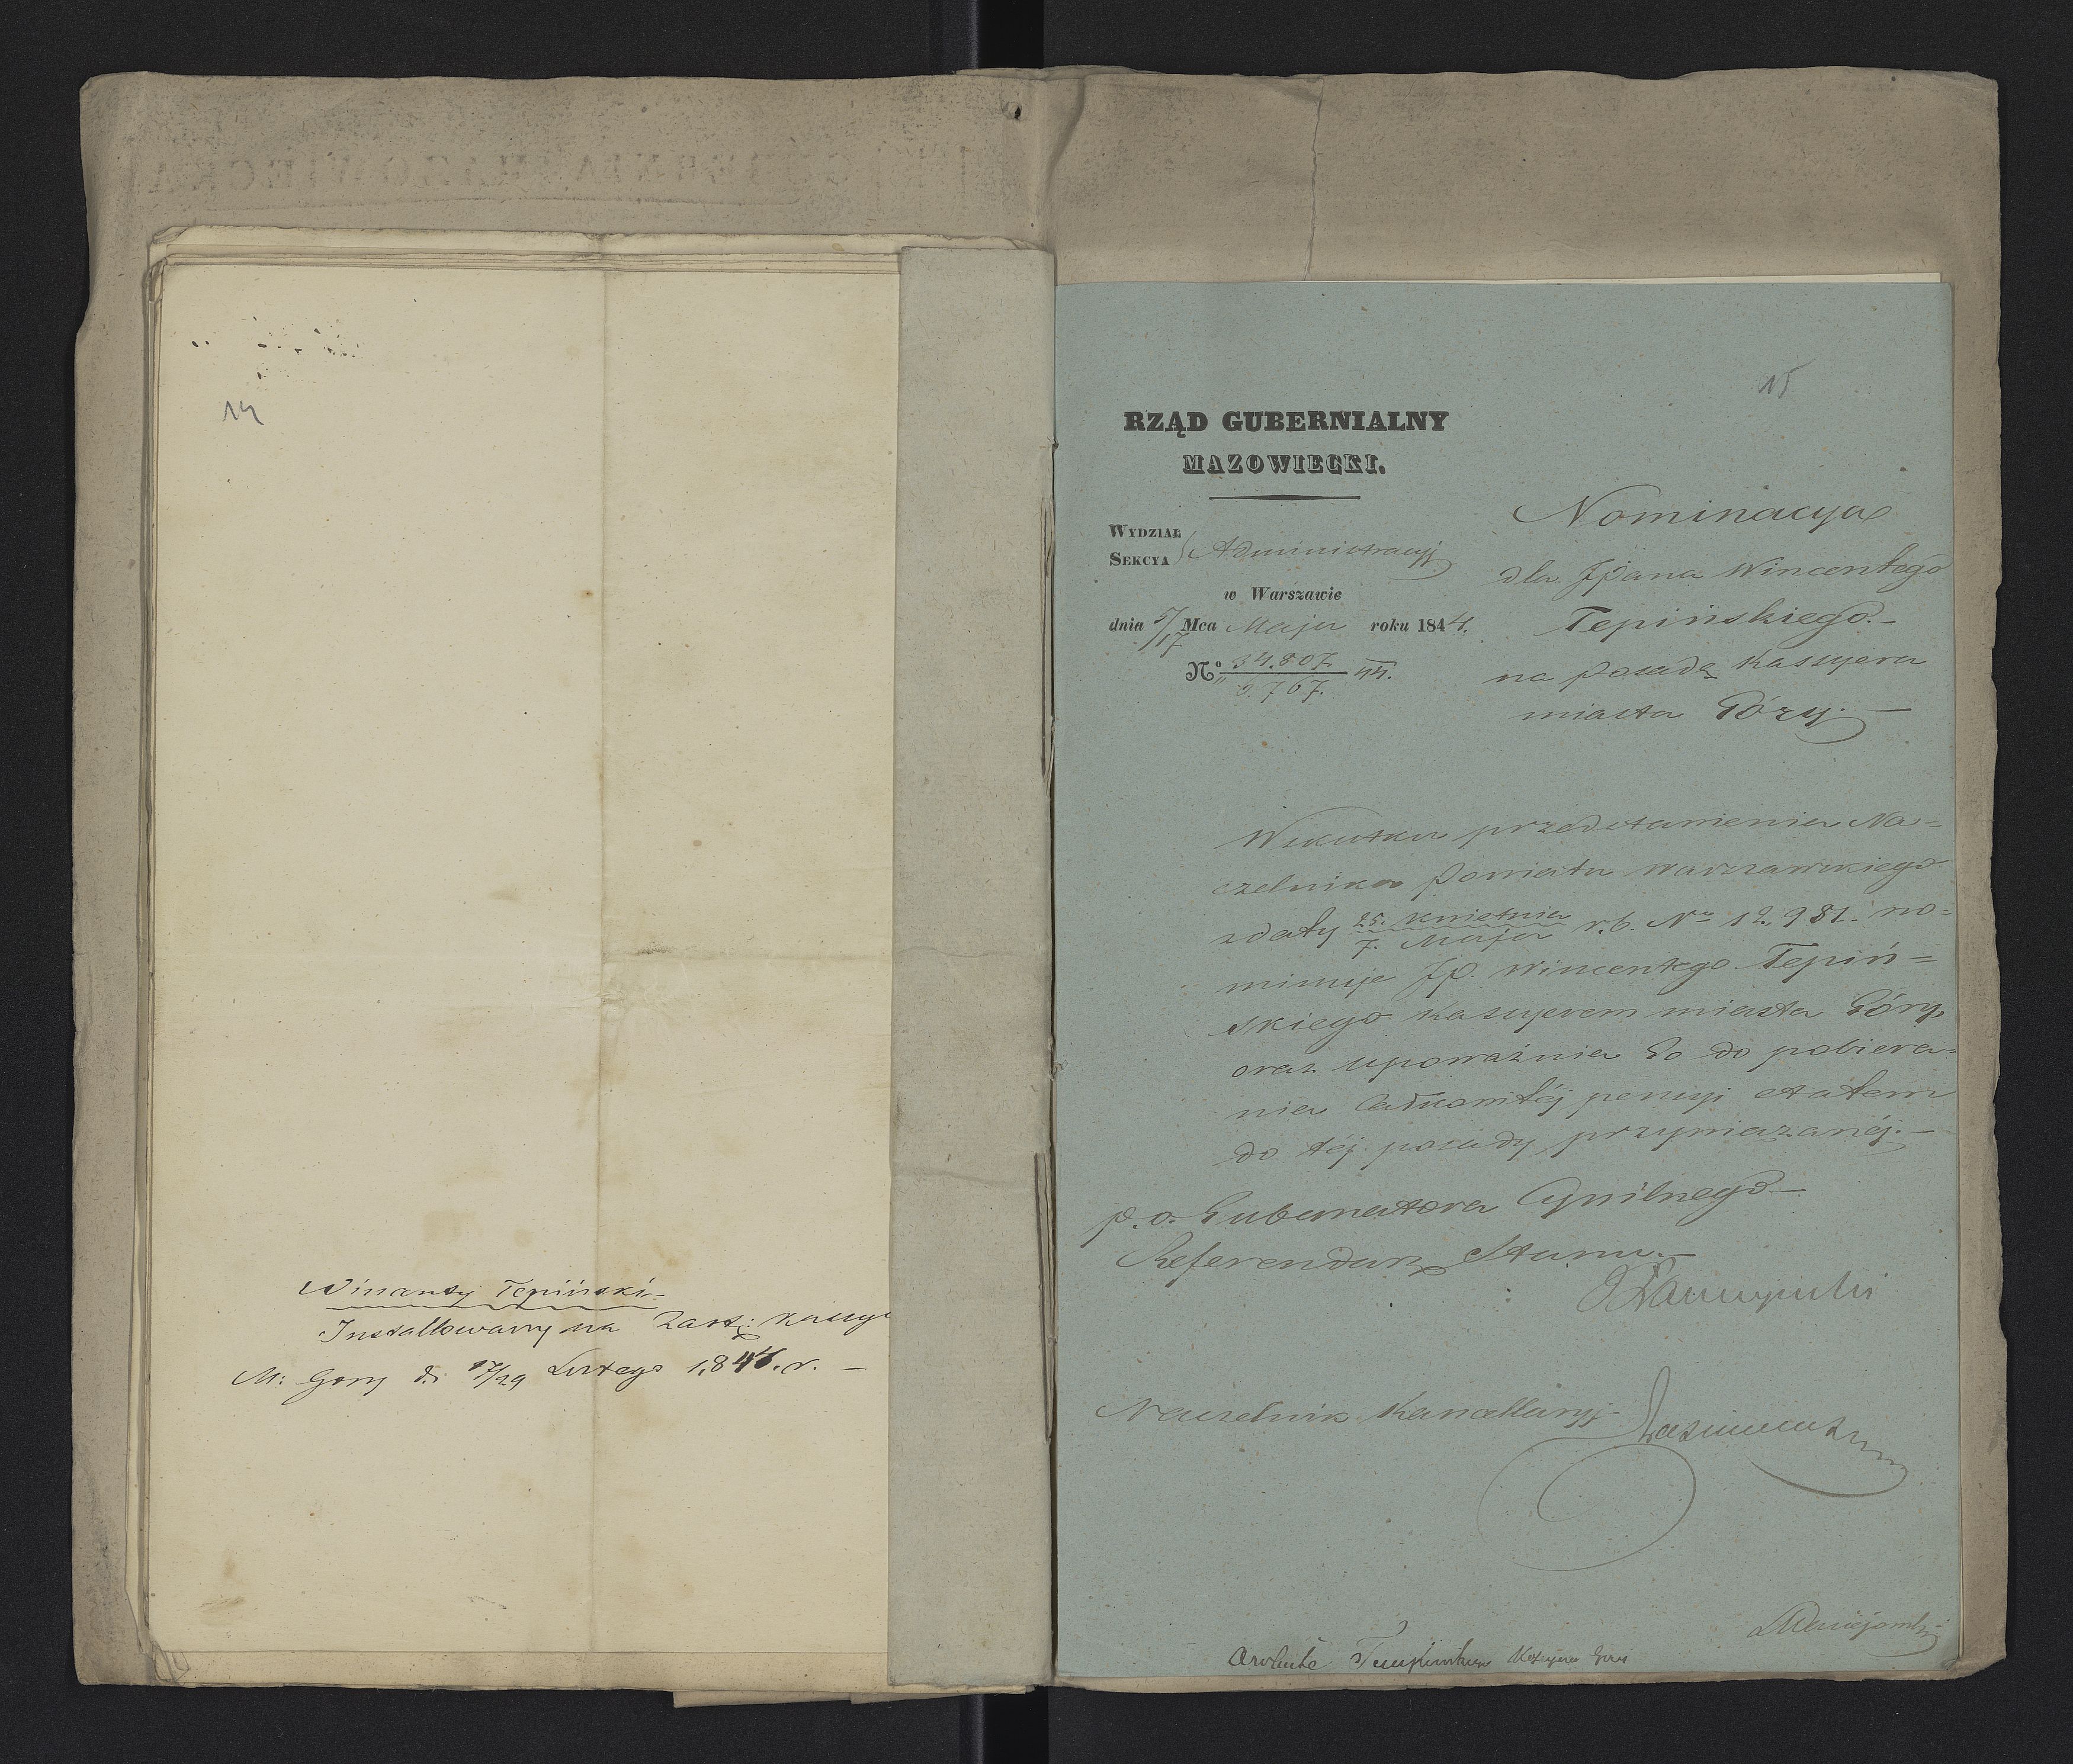 14
Wincenty Tepiński
Installowany na Zast: Kassye
M: Gory d: 17/29 Lutego 1844. r. —
15
RZĄD GUBERNIALNY
MAZOWIECKI.
WYDZIAŁ
SEKCYA Administracyj
w Warszawie
dnia 5/17 Mca Maja roku 1844.
No 34.807. 44.
5.767.
Nominacya
dla JPana Wincentego
Tepińskiego. —
na posadę Kassyera
miasta Góry. —
Wskutku przedstawienia Na=
czelnika Powiatu Warszawskiego
z daty 25. Kwietnia r. b. No 12,981. no=
7. Maja
minuje JP. Wincentego Tepiń=
skiego Kassyerem miasta Góry,
oraz upoważnia Go do pobiera=
nia całkowitéj pensyi etatem
do téj posady przywiązanéj. —
p. o. Gubernatora Cywilnego —
Referendarz Stanu. —
Naczelnik Kancellaryj
Kassyera Góry